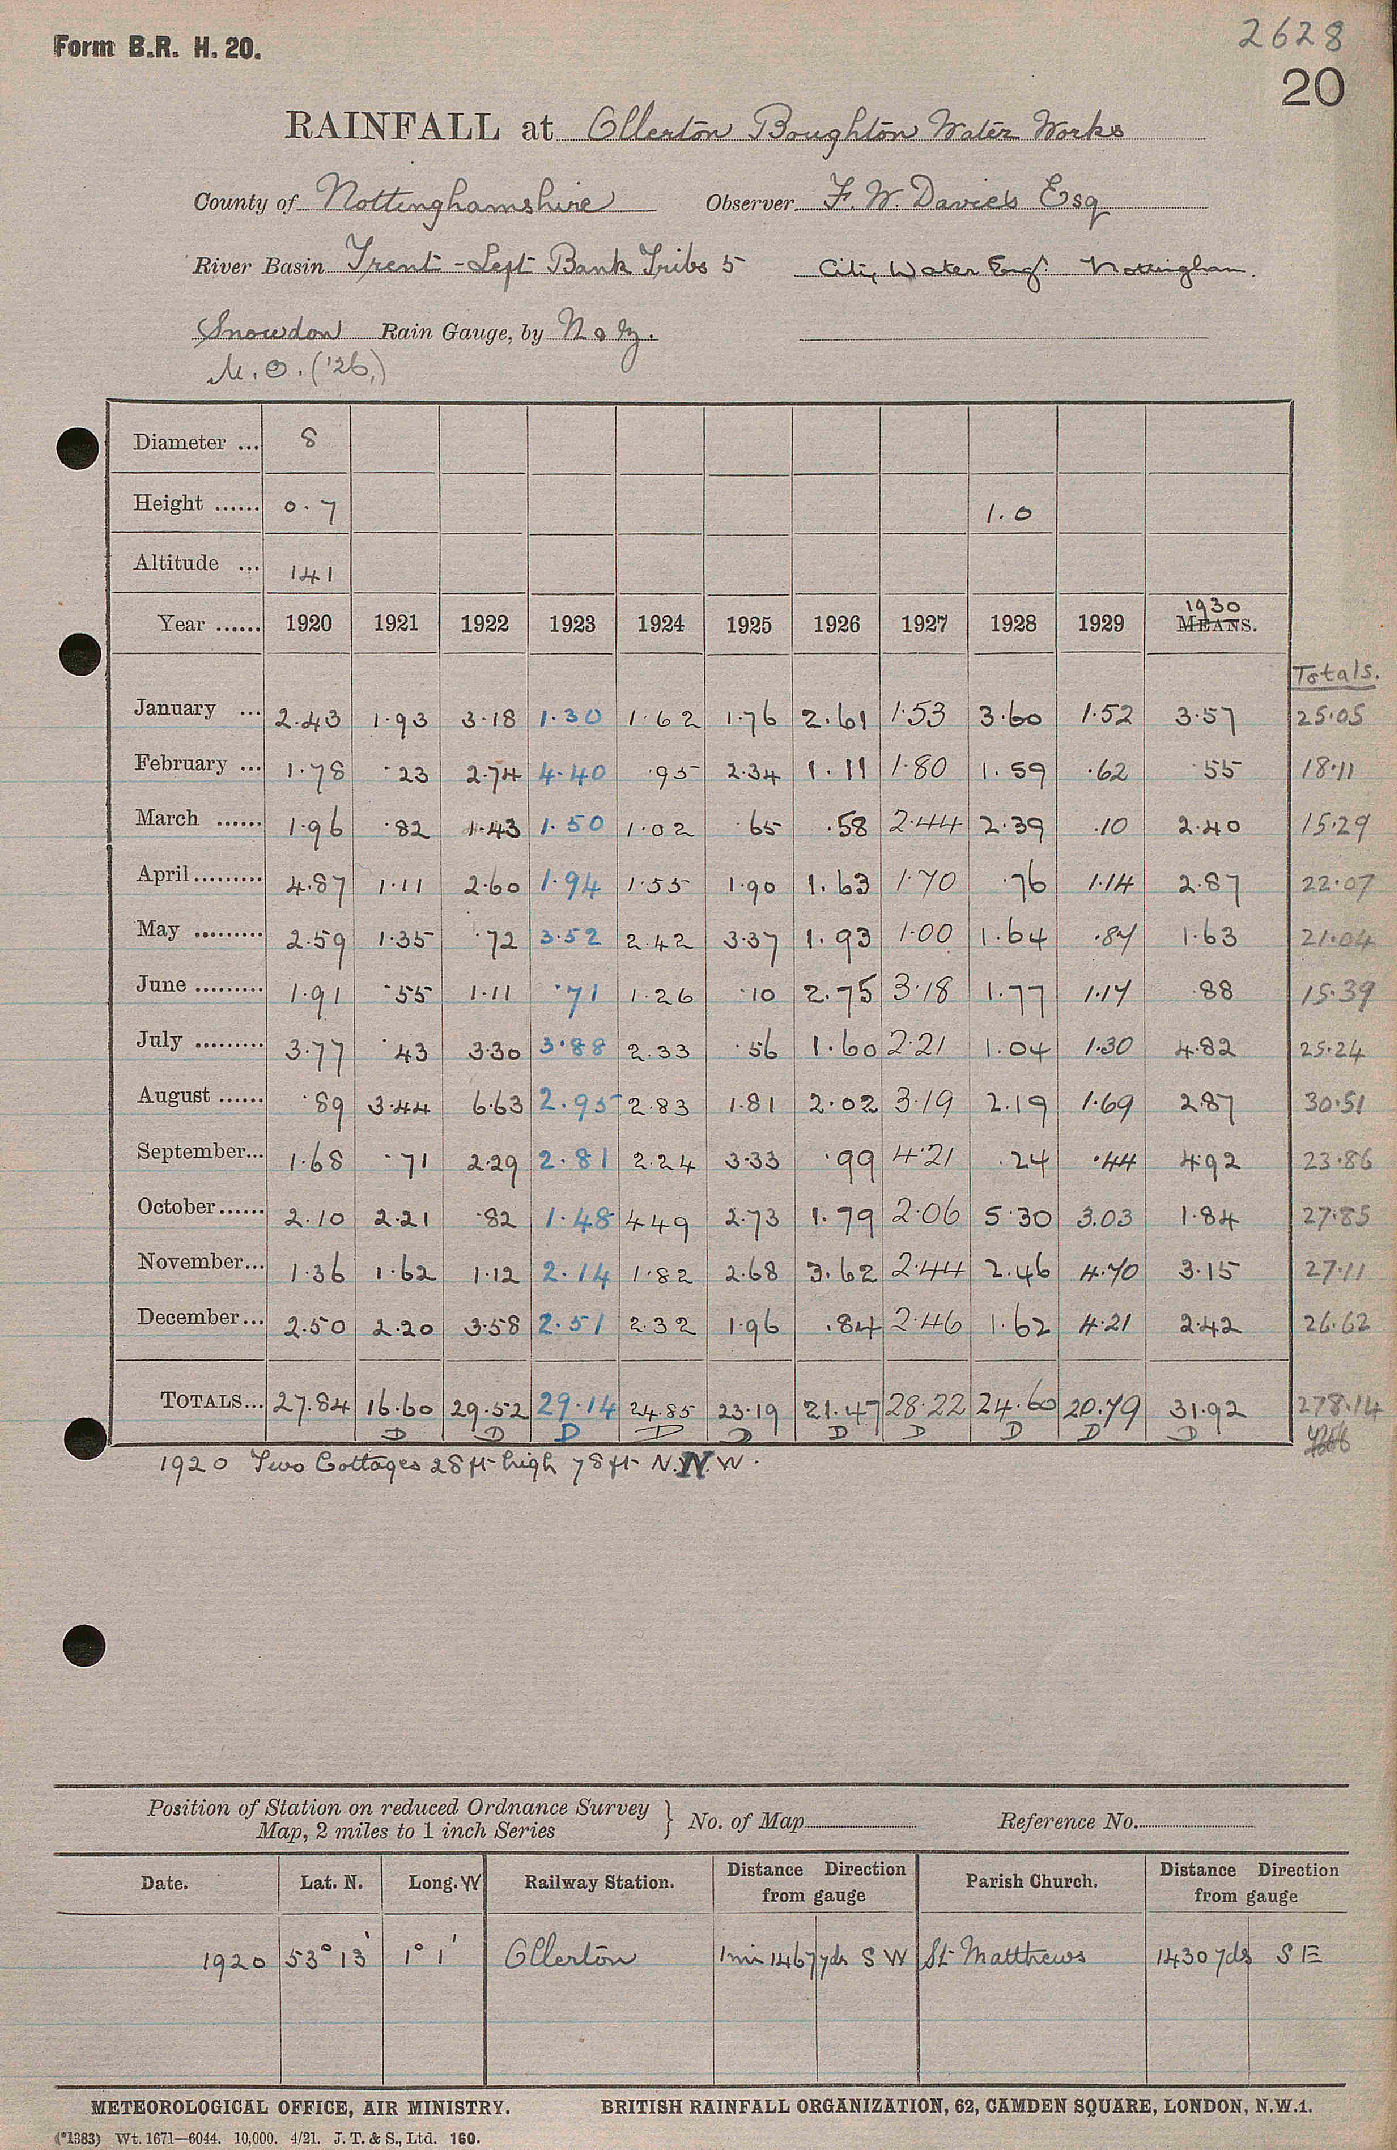 Form B.R. H. 20.
2628
20
RAINFALL at Ollerton Boughton Water Works
County of Nottinghamshire Observer F. W. Davies Esq
River Basin Trent - Left Bank Tribs 5 City Water Engr. Nottingham.
Snowdon Rain Gauge, by N & Z.
M.O. ('26.)
Diameter ... 8
Height ...... 0.7 1.0
Altitude ... 141
Year ...... 1920 1921 1922 1923 1924 1925 1926 1927 1928 1929 1930 MEANS.
Totals.
January ... 2.43 1.93 3.18 1.30 1.62 1.76 2.61 1.53 3.60 1.52 3.57 25.05
February ... 1.78 .23 2.74 4.40 .95 2.34 1.11 1.80 1.59 .62 .55 18.11
March ...... 1.96 .82 1.43 1.50 1.02 .65 .58 2.44 2.39 .10 2.40 15.29
April ......... 4.87 1.11 2.60 1.94 1.55 1.90 1.63 1.70 .76 1.14 2.87 22.07
May ......... 2.59 1.35 .72 3.52 2.42 3.37 1.93 1.00 1.64 .87 1.63 21.04
June ......... 1.91 .55 1.11 .71 1.26 .10 2.75 3.18 1.77 1.17 .88 15.39
July ......... 3.77 .43 3.30 3.88 2.33 .56 1.60 2.21 1.04 1.30 4.82 25.24
August ...... .89 3.44 6.63 2.95 2.83 1.81 2.02 3.19 2.19 1.69 2.87 30.51
September... 1.68 .71 2.29 2.81 2.24 3.33 .99 4.21 .24 .44 4.92 23.86
October...... 2.10 2.21 .82 1.48 4.49 2.73 1.79 2.06 5.30 3.03 1.84 27.85
November... 1.36 1.62 1.12 2.14 1.82 2.68 3.62 2.44 2.46 4.70 3.15 27.11
December... 2.50 2.20 3.58 2.51 2.32 1.96 .84 2.46 1.62 4.21 2.42 26.62
TOTALS... 27.84 16.60 29.52 29.14 24.85 23.19 21.47 28.22 24.60 20.79 31.92 278.14
D D D D D D D D D D
1920 Two Cottages 28 ft high 78 ft N.N.W.
Position of Station on reduced Ordnance Survey
Map, 2 miles to 1 inch Series } No. of Map Reference No.
Date. Lat. N. Long. W Railway Station. Distance Direction from gauge Parish Church. Distance Direction from gauge
1920 53° 13' 1° 1' Ollerton 1 mi 1467 yds S W St Matthews 1430 yds S E
METEOROLOGICAL OFFICE, AIR MINISTRY. BRITISH RAINFALL ORGANIZATION, 62, CAMDEN SQUARE, LONDON, N.W.1.
(*1383) Wt. 1671—6044. 10,000. 4/21. J. T. & S., Ltd. 160.